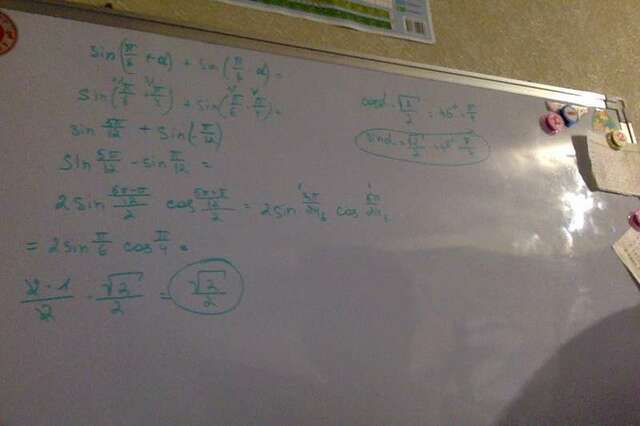 sin(π/6 + α) + sin(π/6 - α) =
sin(π/6 + π/4) + sin(π/6 - π/4) =
sin 5π/12 + sin(-π/12)
sin 5π/12 - sin π/12 =
2 sin ((5π-π)/12)/2 cos ((5π+π)/12)/2 = 2 sin 4π/24 cos 6π/24
= 2 sin π/6 cos π/4 =
2·1/2 · √2/2 = √2/2
cosα = √2/2 = 45° = π/4
sinα = √2/2 = 45° π/4